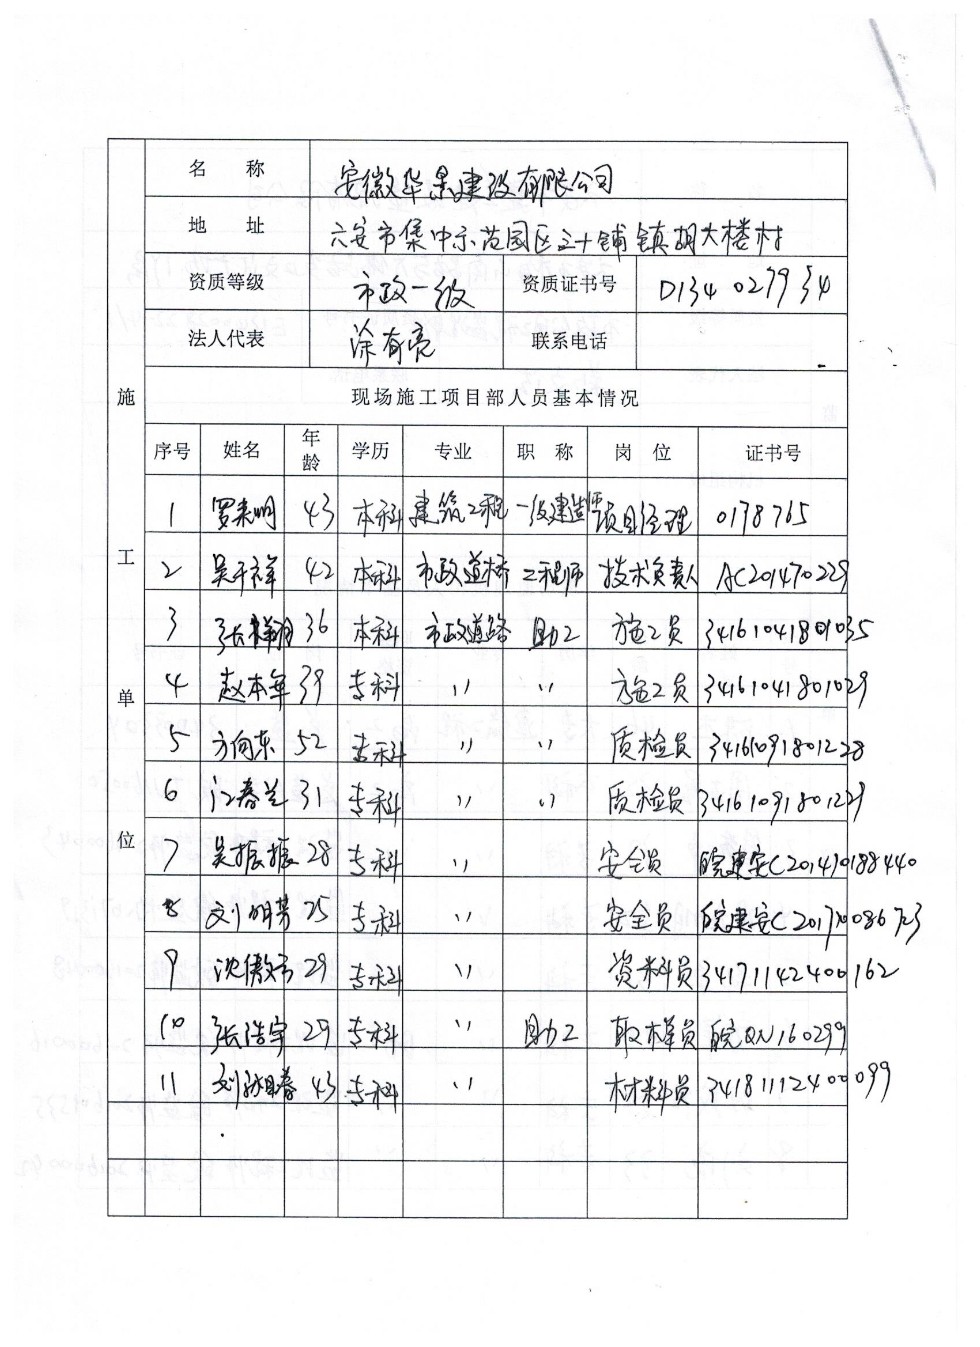 名 称 安徽华景建设有限公司
地 址 六安市集中示范园区三十铺镇胡大楼村
资质等级 市政一级 资质证书号 D134027934
法人代表 涂有亮 联系电话
施工单位
现场施工项目部人员基本情况
序号 姓名 年龄 学历 专业 职 称 岗 位 证书号
1 罗来明 43 本科 建筑工程 一级建造师 项目经理 0178765
2 吴千祥 42 本科 市政道桥 工程师 技术负责人 AC201470229
3 36 本科 市政道路 助工 施工员 34161041801035
4 赵本军 39 专科 〃 〃 施工员 34161041801029
5 方向东 52 专科 〃 〃 质检员 34161091801228
6 江春兰 31 专科 〃 〃 质检员 34161091801229
7 吴振振 28 专科 〃 安全员 皖建安C201470188440
8 刘明芳 25 专科 〃 安全员 皖建安C2017
9 29 专科 〃 资料员 34171142400162
10 张浩宇 29 专科 〃 助工 取样员 皖QN160299
11 43 专科 〃 材料员 34181112400099